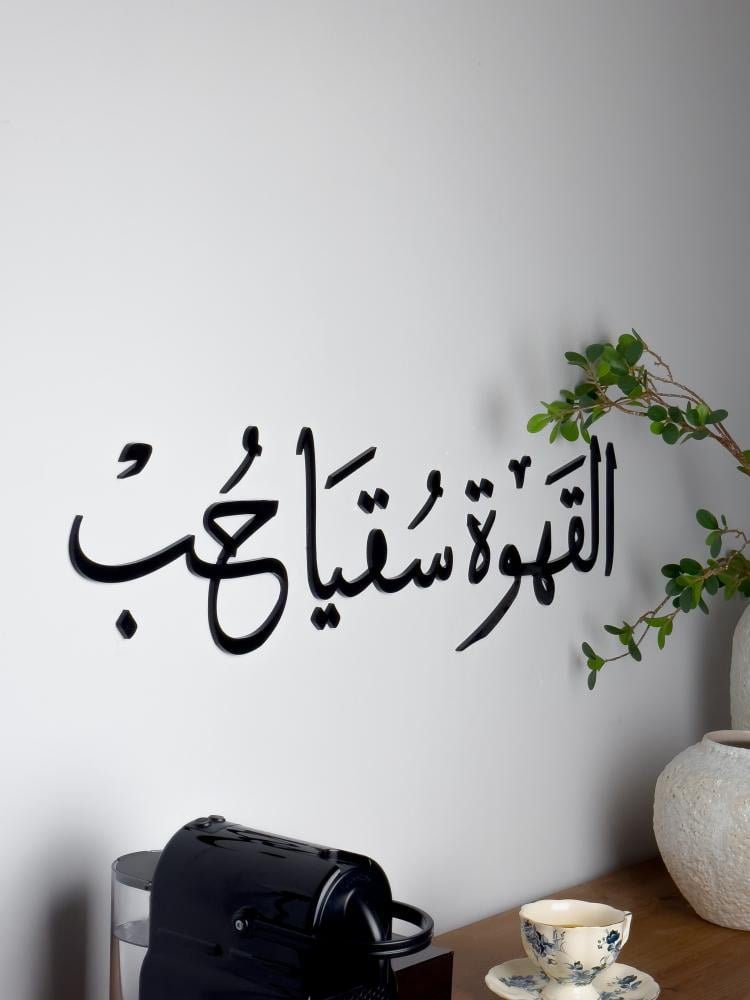 القَهْوة سُقيَا حُبْ